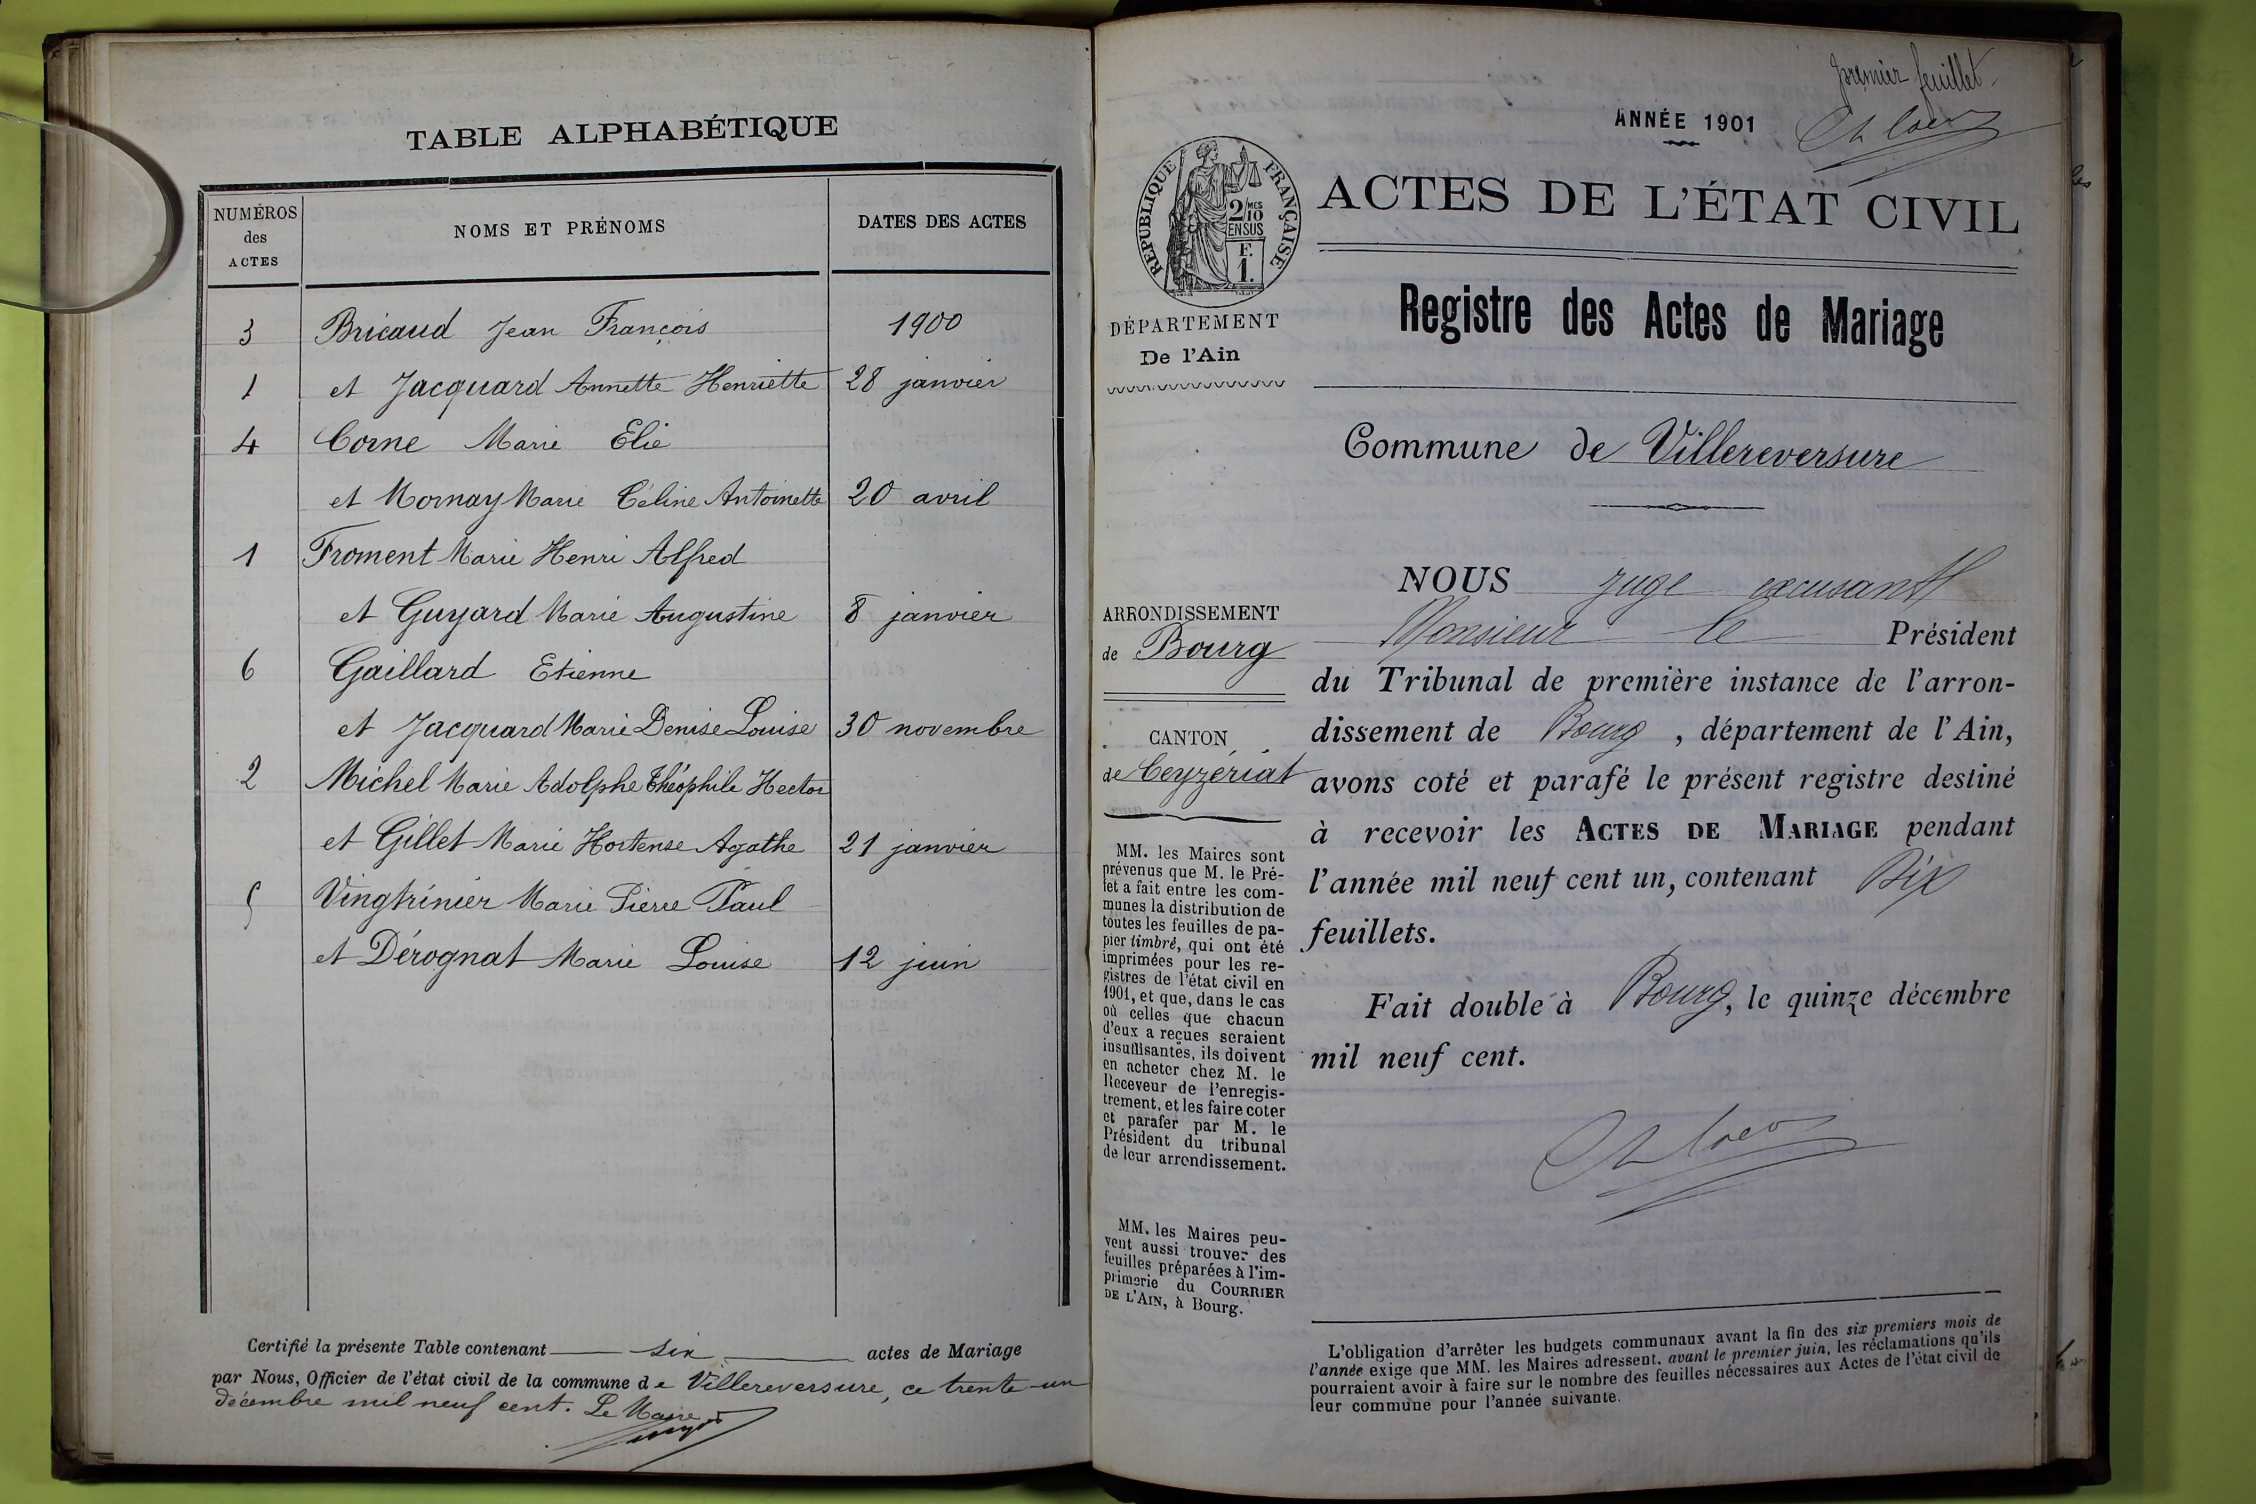 TABLE ALPHABÉTIQUE
NUMÉROS
des
ACTES
NOMS ET PRÉNOMS
DATES DES ACTES
3 Bricaud Jean François 1900
1 et Jacquard Annette Henriette 28 janvier
4 Corne Marie Elie
et Mornay Marie Céline Antoinette 20 avril
1 Froment Marie Henri Alfred
et Guyard Marie Augustine 8 janvier
6 Gaillard Etienne
et Jacquard Marie Denise Louise 30 novembre
2 Michel Marie Adolphe Théophile Hector
et Gillet Marie Hortense Agathe 21 janvier
5 Vingtrinier Marie Pierre Paul
et Dérognat Marie Louise 12 juin
Certifié la présente Table contenant six actes de Mariage
par Nous, Officier de l'état civil de la commune de Villereversure, ce trente-un
décembre mil neuf cent. Le Maire
premier feuillet
ANNÉE 1901
RÉPUBLIQUE FRANÇAISE
2/10 MES
EN SUS
F.
1.
ACTES DE L'ÉTAT CIVIL
Registre des Actes de Mariage
DÉPARTEMENT
De l'Ain
Commune de Villereversure
ARRONDISSEMENT
de Bourg
CANTON
de Ceyzériat
MM. les Maires sont
prévenus que M. le Pré-
fet a fait entre les com-
munes la distribution de
toutes les feuilles de pa-
pier timbré, qui ont été
imprimées pour les re-
gistres de l'état civil en
1901, et que, dans le cas
où celles que chacun
d'eux a reçues seraient
insuffisantes, ils doivent
en acheter chez M. le
Receveur de l'enregis-
trement, et les faire coter
et parafer par M. le
Président du tribunal
de leur arrondissement.
MM. les Maires peu-
vent aussi trouver des
feuilles préparées à l'im-
primerie du COURRIER
DE L'AIN, à Bourg.
NOUS juge
Monsieur le Président
du Tribunal de première instance de l'arron-
dissement de Bourg, département de l'Ain,
avons coté et parafé le présent registre destiné
à recevoir les ACTES DE MARIAGE pendant
l'année mil neuf cent un, contenant
feuillets.
Fait double à Bourg, le quinze décembre
mil neuf cent.
L'obligation d'arrêter les budgets communaux avant la fin des six premiers mois de
l'année exige que MM. les Maires adressent, avant le premier juin, les réclamations qu'ils
pourraient avoir à faire sur le nombre des feuilles nécessaires aux Actes de l'état civil de
leur commune pour l'année suivante.